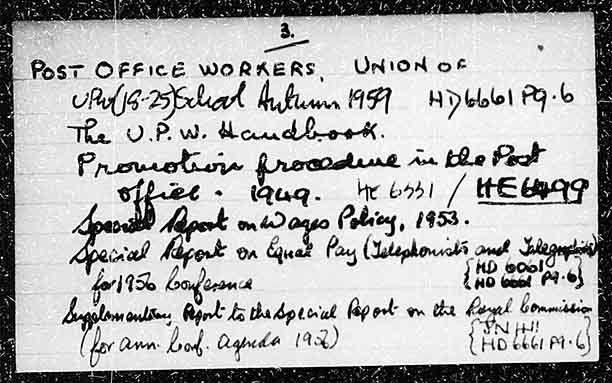 3.
POST OFFICE WORKERS, UNION OF
UPW (18-25) School Autumn 1959 HD6661 P9.6
The U.P.W. Handbook.
Promotion procedure in the Post
Office. 1949. HE 6331 / HE6499
Special Report on Wages Policy, 1953.
Special Report on Equal Pay (Telephonists and Telegraphists)
for 1956 Conference {HD 6061
{HD 6661 P9.6}
Supplementary Report to the Special Report on the Royal Commission
(for ann. Conf. Agenda 1956)
{HD6661 P9.6}